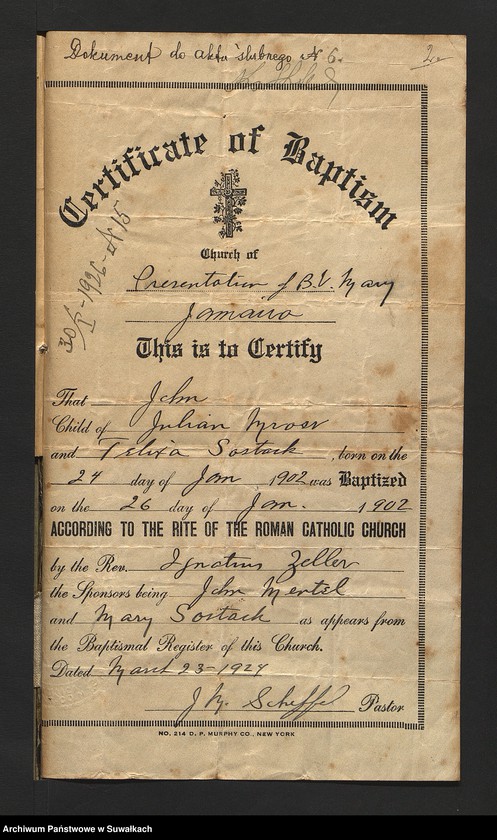 Dokument do akta ślubnego № 6.
2.
Certificate of Baptism
30/I-1926-№15
Church of
Presentation of B.V. Mary
Jamaica
This is to Certify
That John
Child of Julian Mrosv
and Telixa Sostack, born on the
24 day of Jan 1902 was Baptized
on the 26 day of Jan. 1902
ACCORDING TO THE RITE OF THE ROMAN CATHOLIC CHURCH
by the Rev. Ignatius Zeller
the Sponsors being John Mertel
and Mary Sostack as appears from
the Baptismal Register of this Church.
Dated March 23-1924
J. M. Scheffel Pastor
NO. 214 D. P. MURPHY CO., NEW YORK
Archiwum Państwowe w Suwałkach